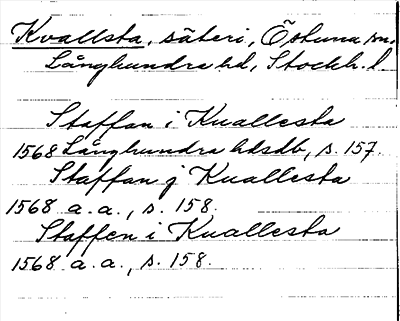 Kvallsta, säteri, Östuna sn.
Långhundra hd, Stockh. l
Staffan i Kuallesta
1568 Långhundra hdsdb, s. 157.
Staffan j Kuallesta
1568 a.a., s. 158.
Staffen i Kuallesta
1568 a.a., s. 158.